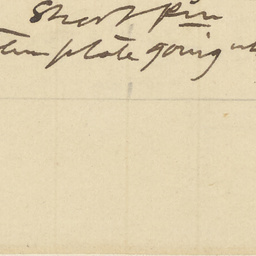 Short pin
plate going